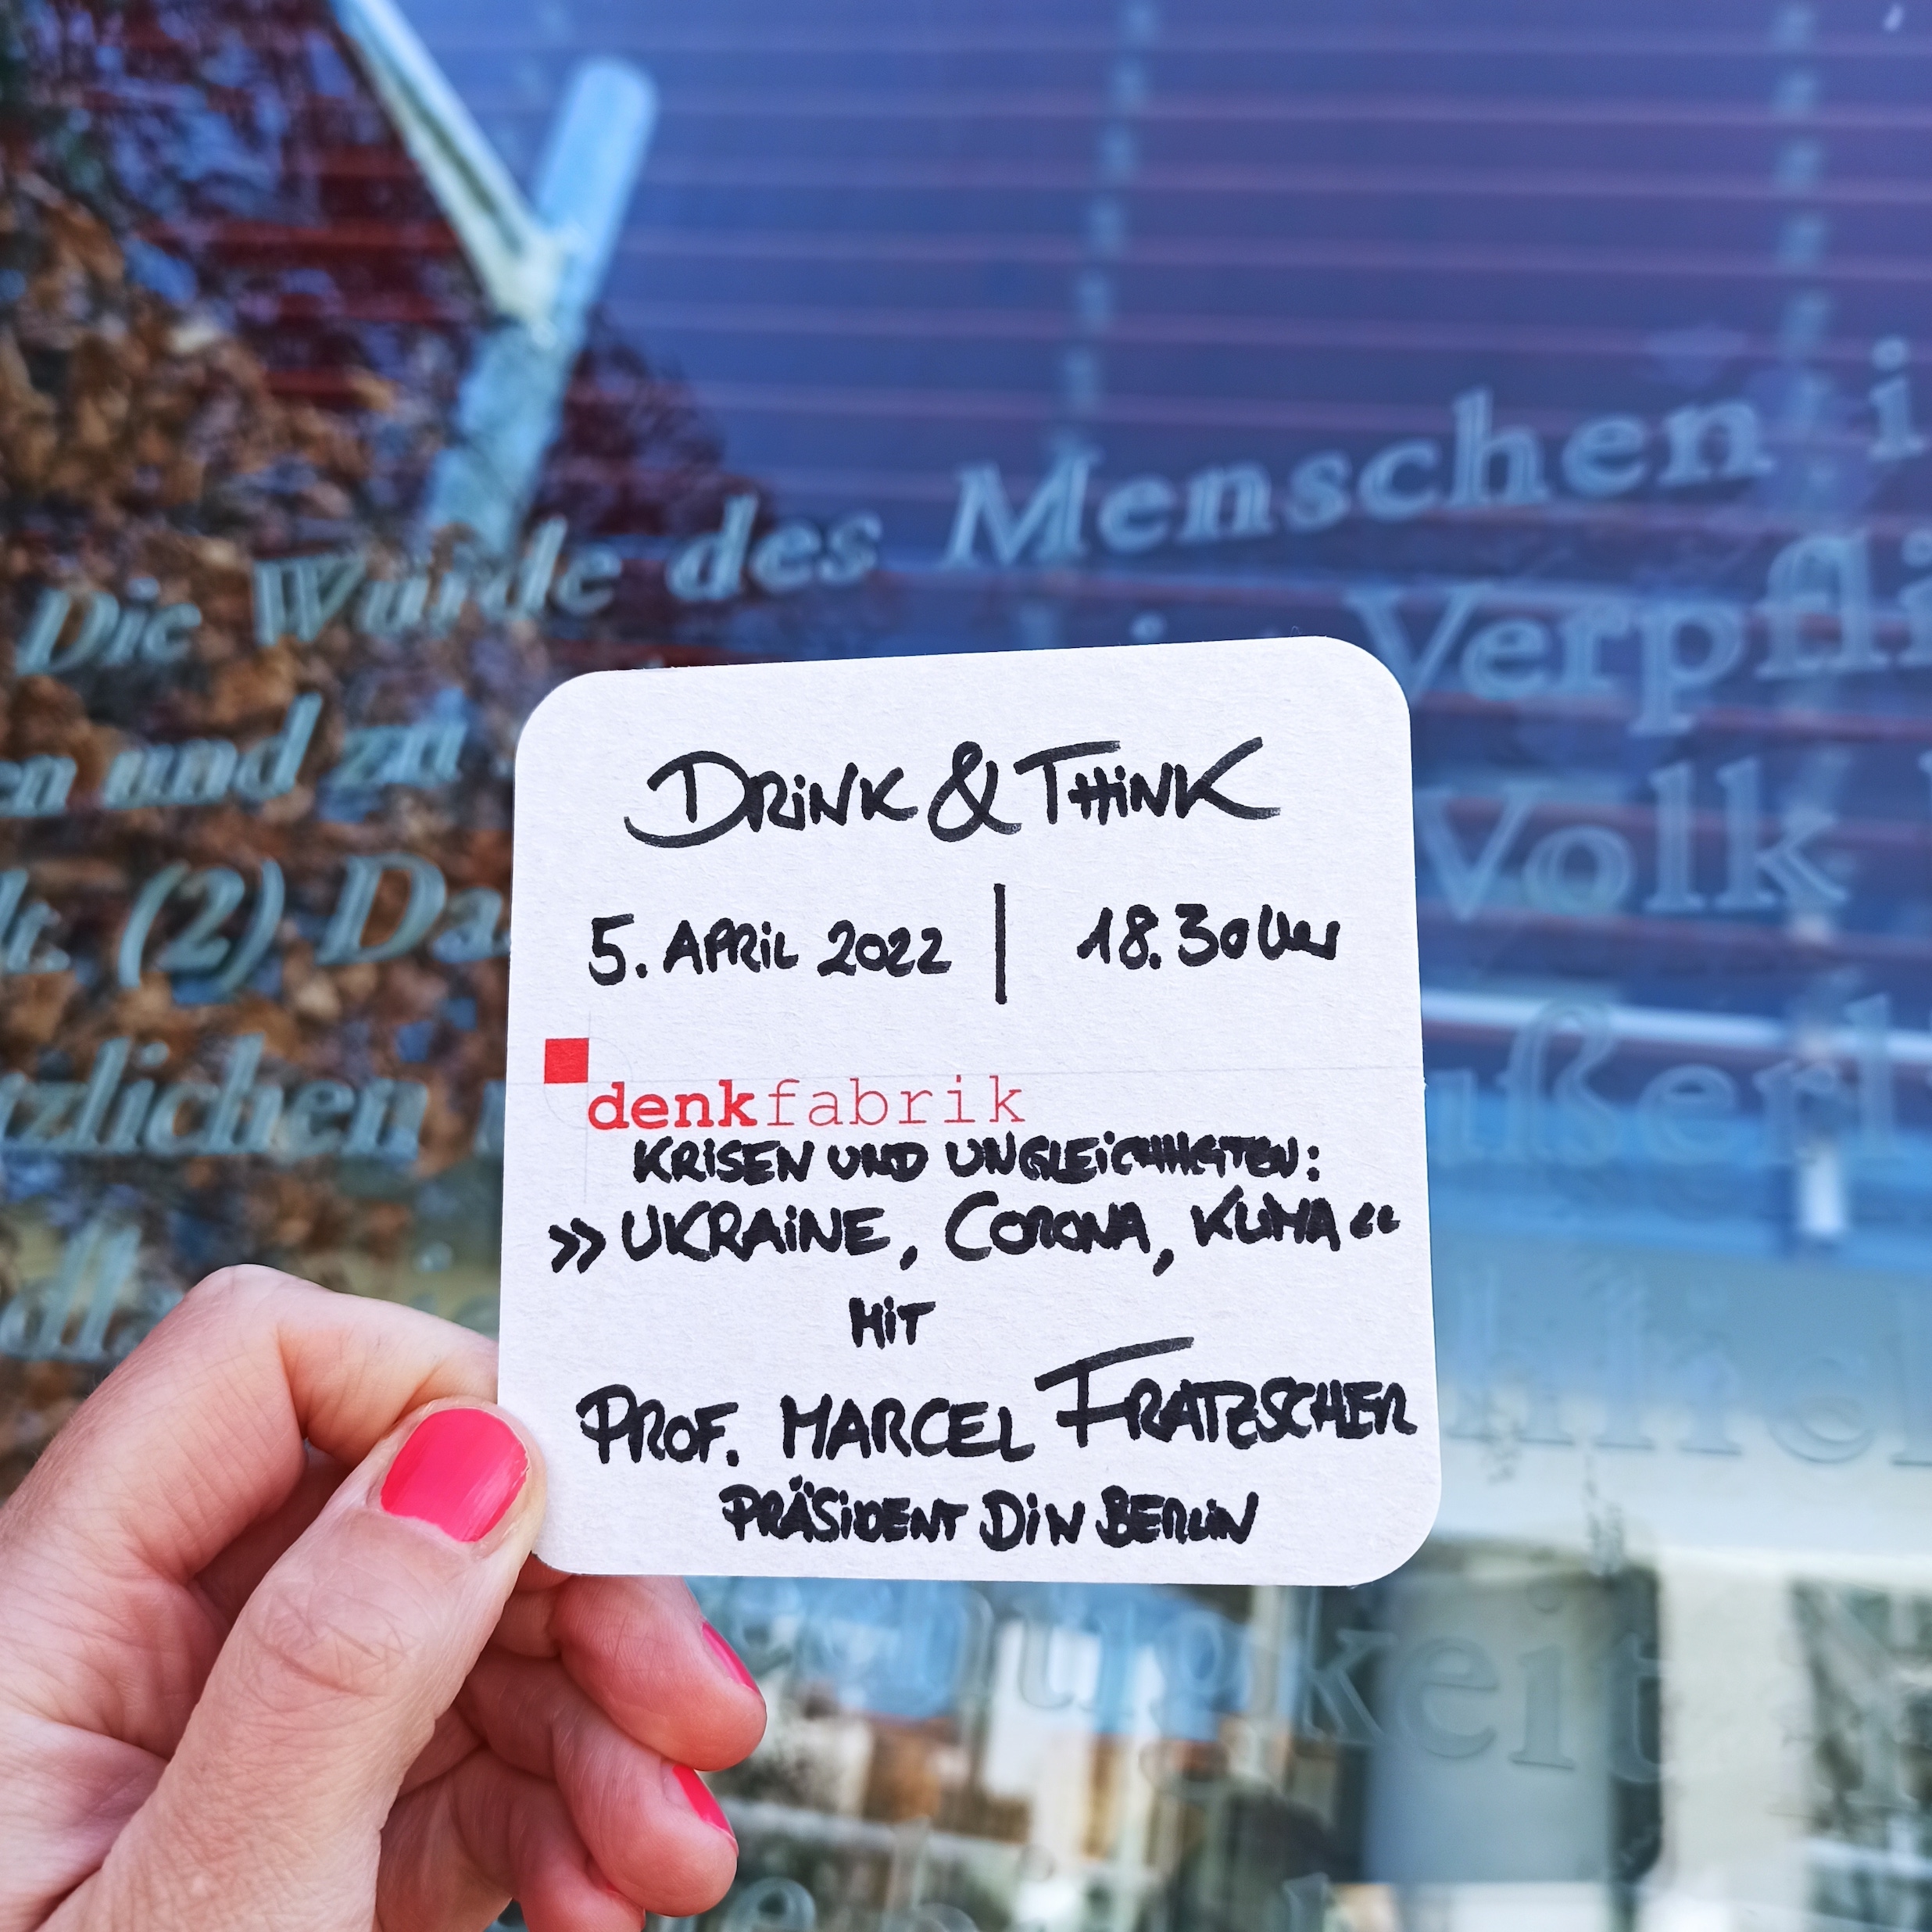 Die Würde des Menschen i
Verpfli
en und zu
Volk
t. (2) Da
ußerl
tzlichen
keit
DRiNK & THiNK
5. APRiL 2022 | 18.30 Uhr
denkfabrik
KRiSEN UND UNGLEiCHHEiTEN:
»UKRAiNE, CORONA, KLiMA«
MiT
PROF. MARCEL FRATZSCHER
PRÄSiDENT DiW BERLiN